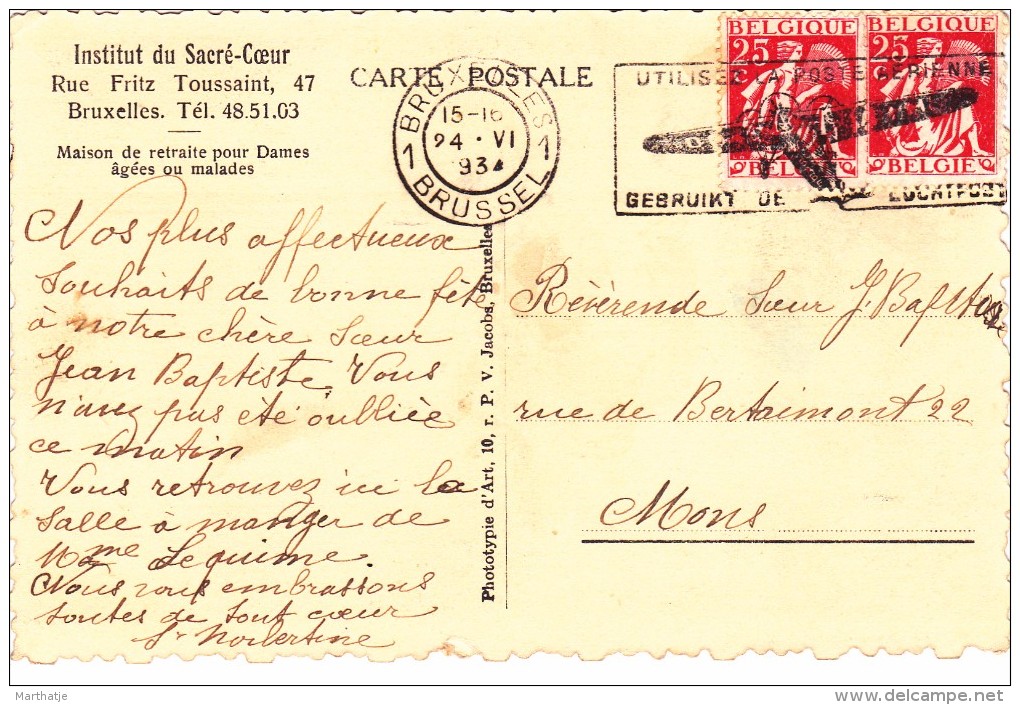 Institut du Sacré-Cœur
Rue Fritz Toussaint, 47
Bruxelles. Tél. 48.51.03
Maison de retraite pour Dames
âgées ou malades
CARTE POSTALE
BRUXELLES
15-16
24 · VI
934
1 1
BRUSSEL
BELGIQUE BELGIQUE
25 25
BELGIE BELGIE
UTILISEZ LA POSTE AERIENNE
GEBRUIKT DE LUCHTPOST
Nos plus affectueux
souhaits de bonne fête
à notre chère Sœur
Jean Baptiste. Vous
n'avez pas été oubliée
ce matin
Vous retrouvez ici la
salle à manger de
Mme Lequime.
Nous vous embrassons
toutes de tout cœur
Sr Norbertine
Phototypie d'Art, 10, r. P. V. Jacobs, Bruxelles
Révérende Sœur J. Baptiste
rue de Bertaimont 22
Mons
Marthatje
delcampe.net